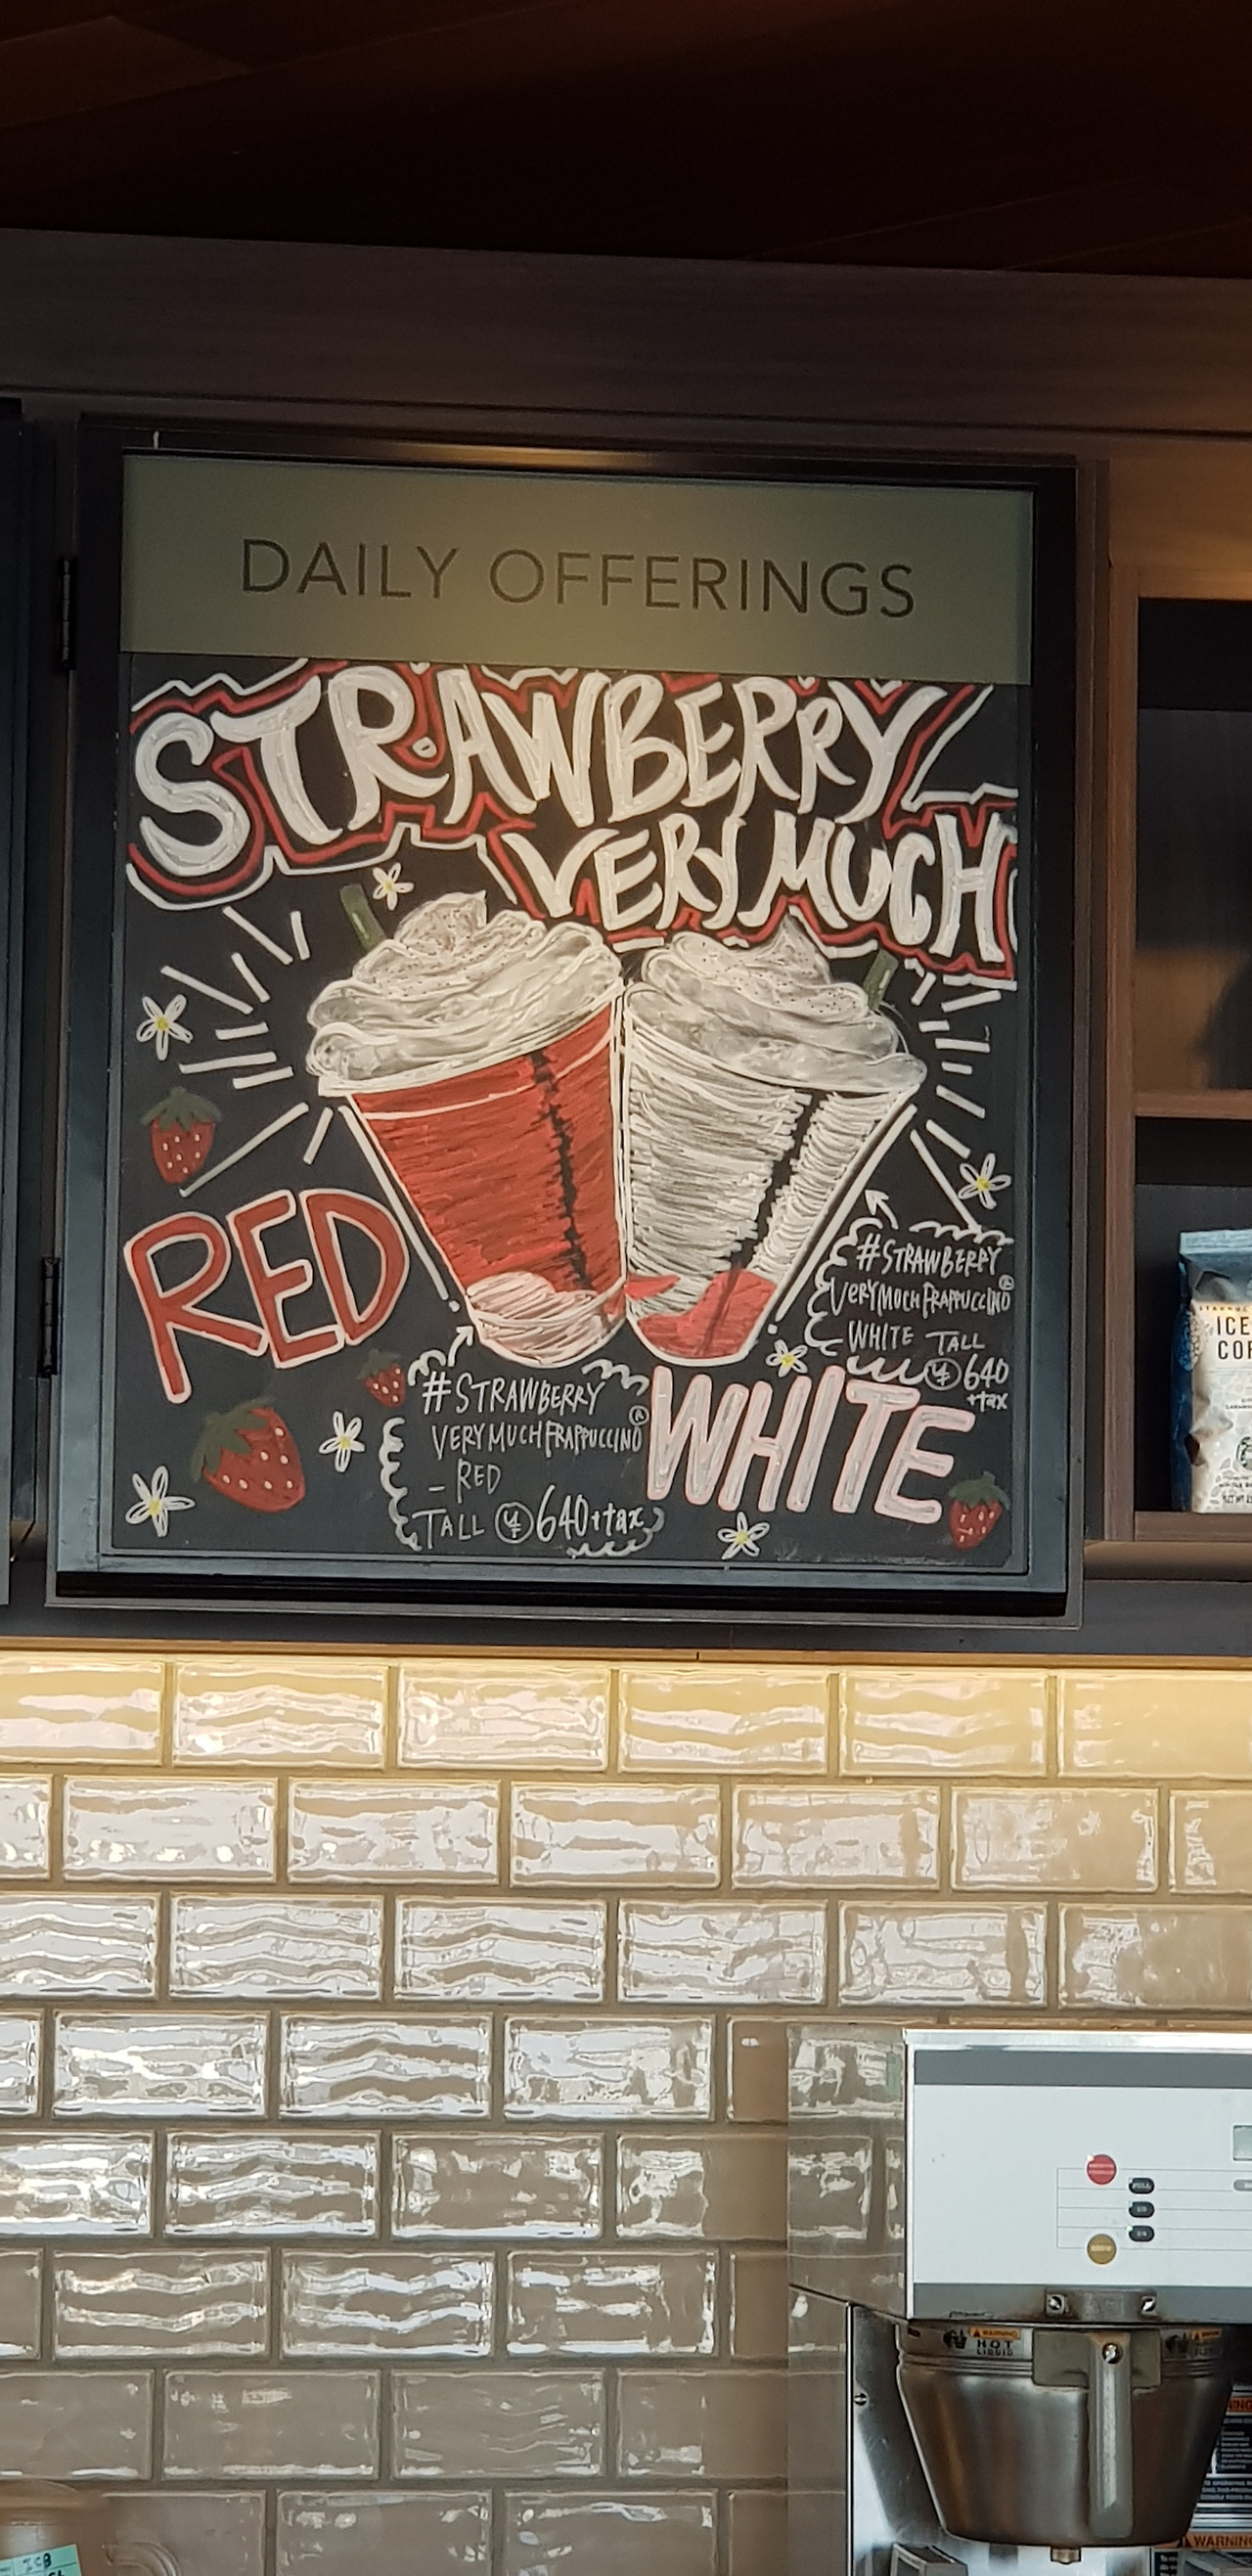 DAILY OFFERINGS
STRAWBERRY
VERY MUCH
RED
#STRAWBERRY
VERY MUCH FRAPPUCCINO®
WHITE TALL
¥640
+tax
#STRAWBERRY
VERY MUCH FRAPPUCCINO®
- RED
TALL ¥640+tax
WHITE
ICE
COF
WARNING
HOT
LIQUID
WARNING